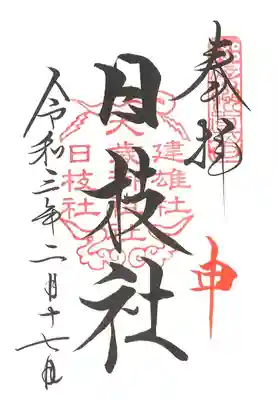 奉拝
申
日枝社
建雄社
大歳社
日枝社
令和三年二月十七日